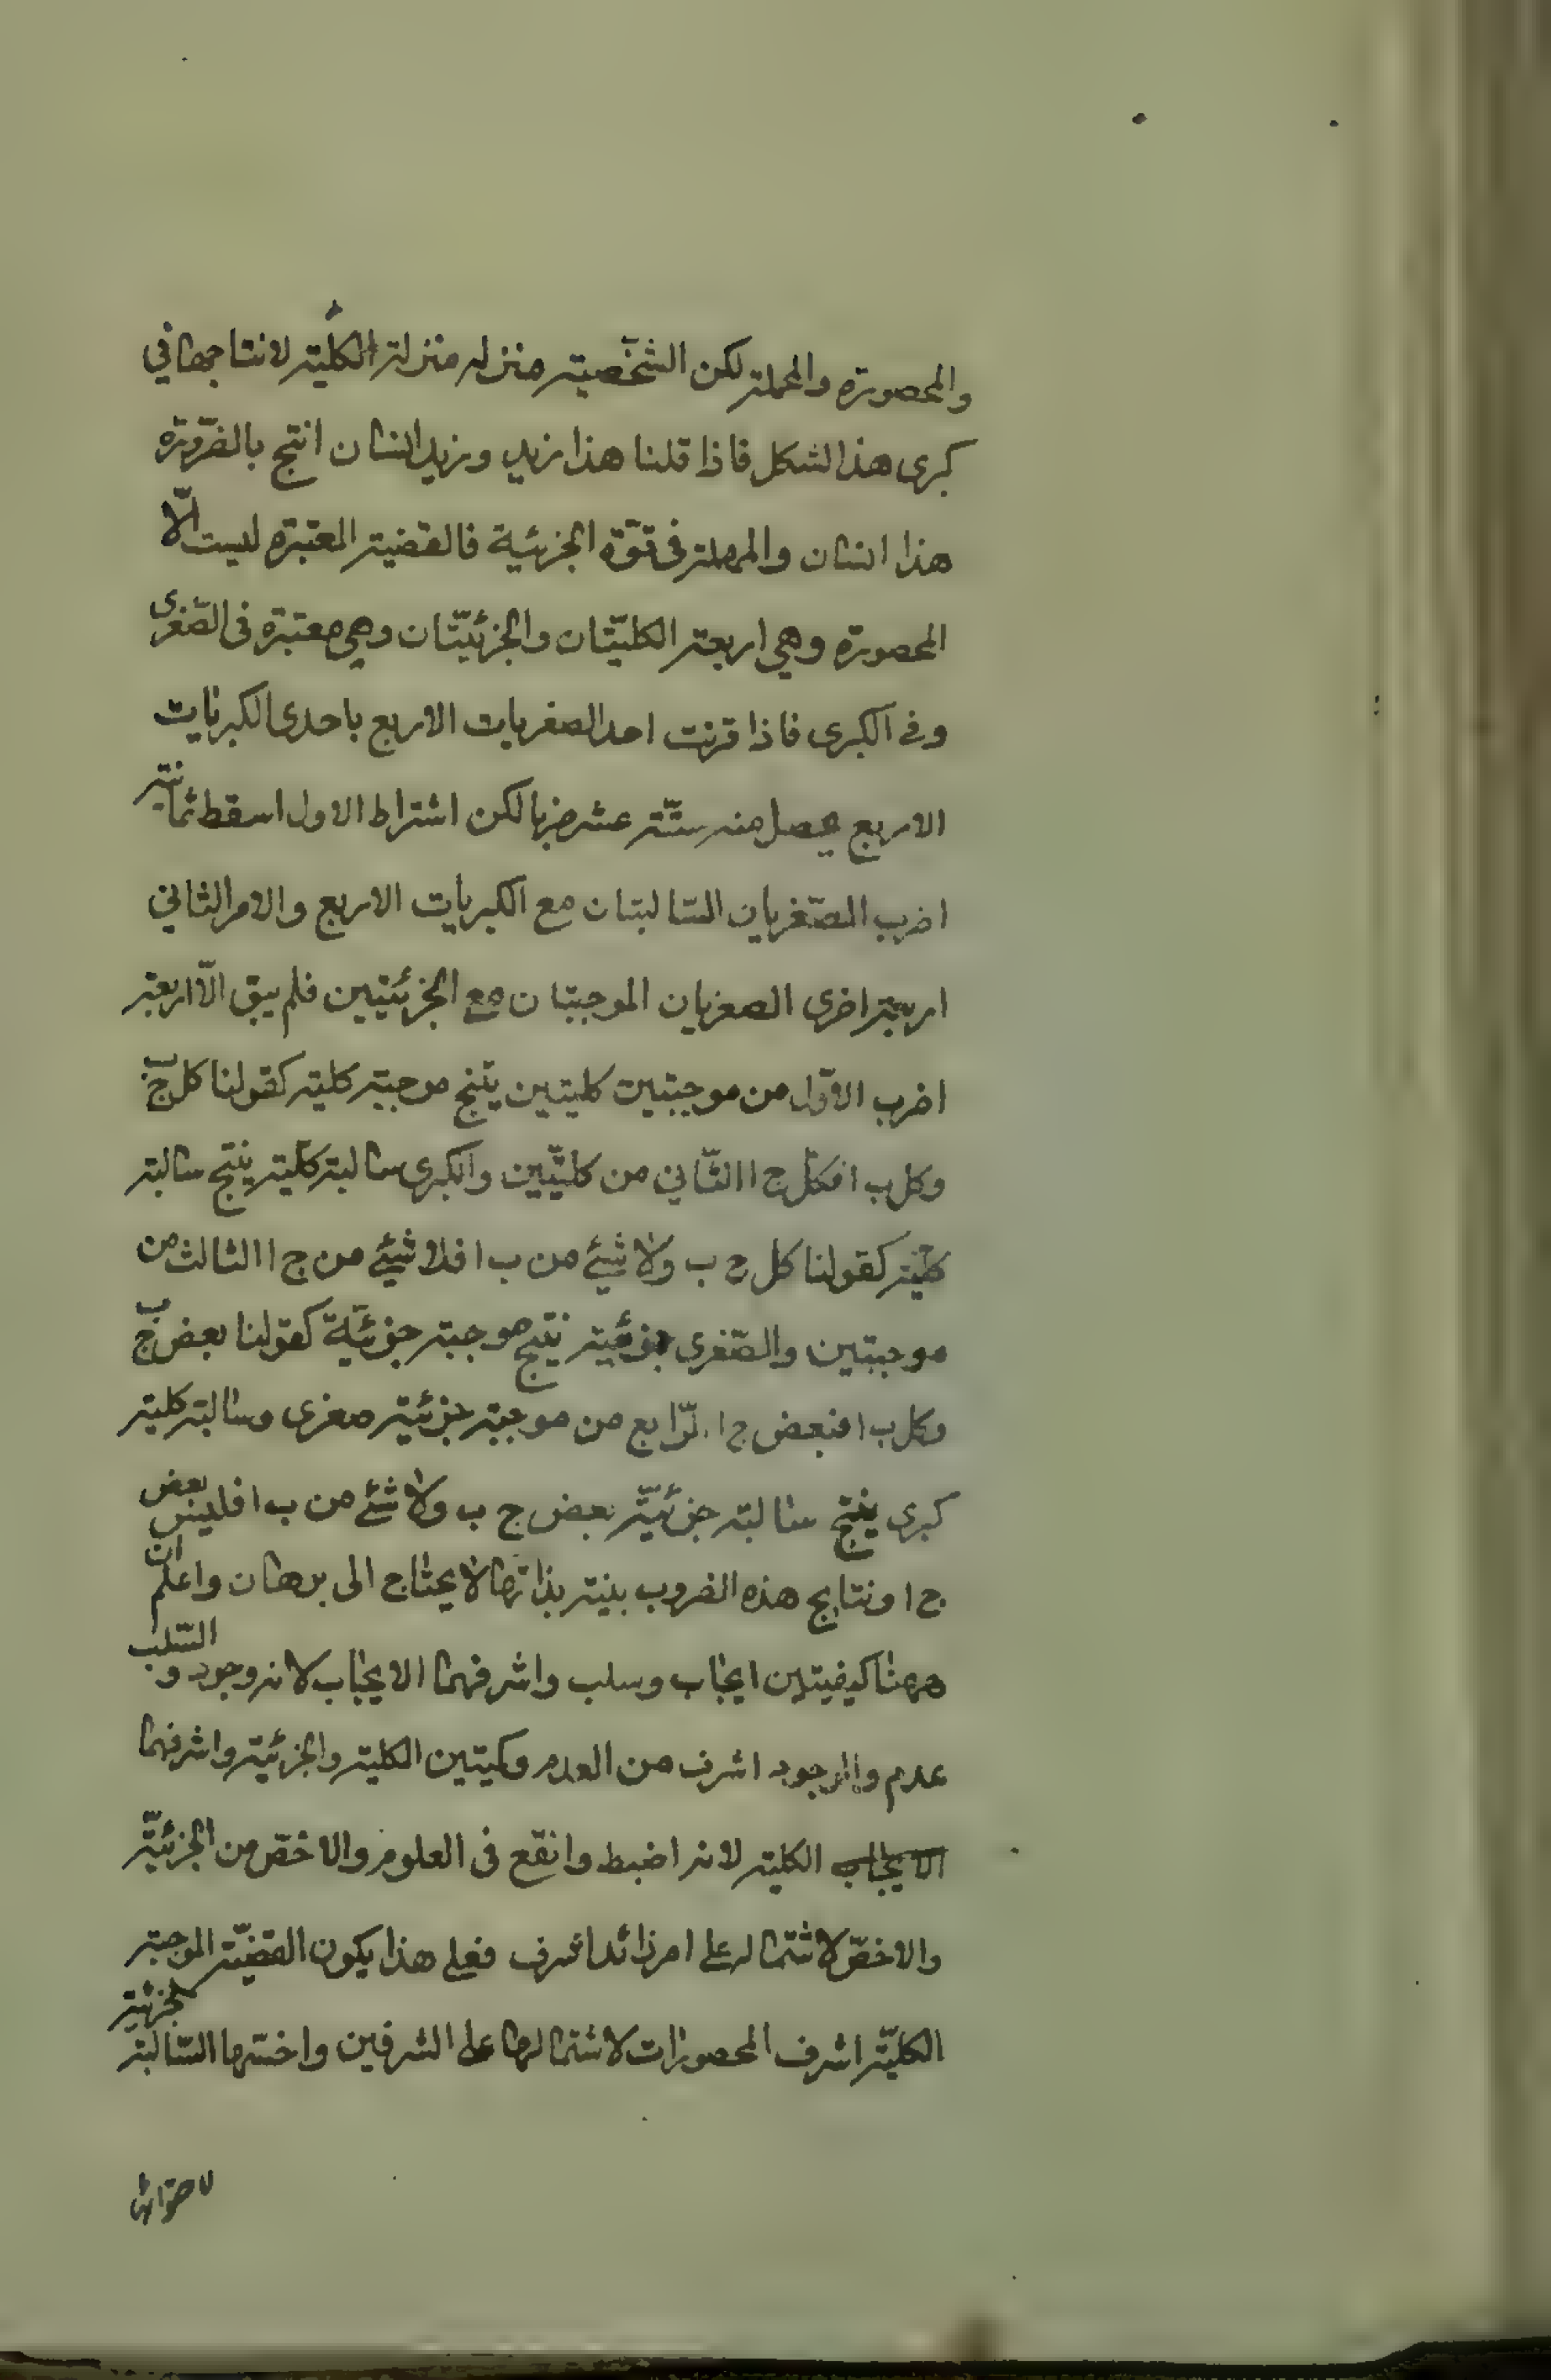 والمحصورة والمهملة لكن الشخصية منزله منزلة الكلية لانتاجها في
كبرى هذا لشكل فاذا قلنا هذا زيد وزيد انسان انتج بالضرورة
هذا انسان والمهملة فى قوّة الجزئية فالقضية المعتبرة ليست الّا
المحصورة وهي اربعة الكليّتان والجزئيّتان وهي معتبرة فى الصّغرى
وفى الكبرى فاذا قرنت احد الصغريات الاربع باحدى الكبريات
الاربع يحصل منه ستّة عشر ضربا لكن اشتراط الاول اسقط ثمانية
اضرب الصّغريان السّالبتان مع الكبريات الاربع والامر الثاني
اربعة اخرى الصغريان الموجبتان مع الجزئيتين فلم يبق الّا اربعة
اضرب الاوّل من موجبتين كليتين ينتج موجبة كلية كقولنا كل ج ب
وكل ب ا فكل ج ا الثّاني من كليّتين والكبرى سالبة كليّة ينتج سالبة
كليّة كقولنا كل ج ب ولا شئ من ب ا فلا شئ من ج ا الثالث من
موجبتين والصّغرى جزئية ينتج موجبة جزئيّة كقولنا بعض ج ب
وكل ب ا فبعض ج ا الرّابع من موجبة جزئيّة صغرى وسالبة كلية
كبرى ينتج سالبة جزئيّة بعض ج ب ولا شئ من ب ا فليس بعض
ج ا ونتايج هذه الضروب بينة بذاتها لا يحتاج الى برهان واعلم ان
ههنا كيفيتين ايجاب وسلب واشرفهما الايجاب لانه وجود والسّلب
عدم والوجود اشرف من العدم وكميتين الكلية والجزئية واشرفهما
الايجاب الكلية لانه اضبط وانفع فى العلوم والاخصّ من الجزئيّة
والاخصّ لاشتماله على امر زائد اشرف فعلى هذا يكون القضيّة الموجبة
الكليّة اشرف المحصورات لاشتمالها على الشرفين واخسّها السّالبة الجزئية
لاحتوائها